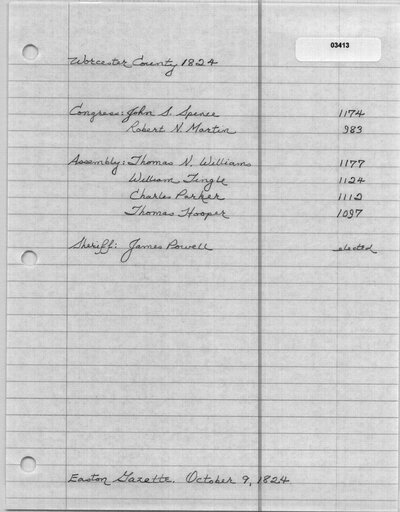 03413
Worcester County 1824
Congress: John S. Spence 1174
Robert N. Martin 983
Assembly: Thomas N. Williams 1177
William Tingle 1124
Charles Parker 1112
Thomas Hooper 1097
Sheriff: James Powell elected
Easton Gazette, October 9, 1824